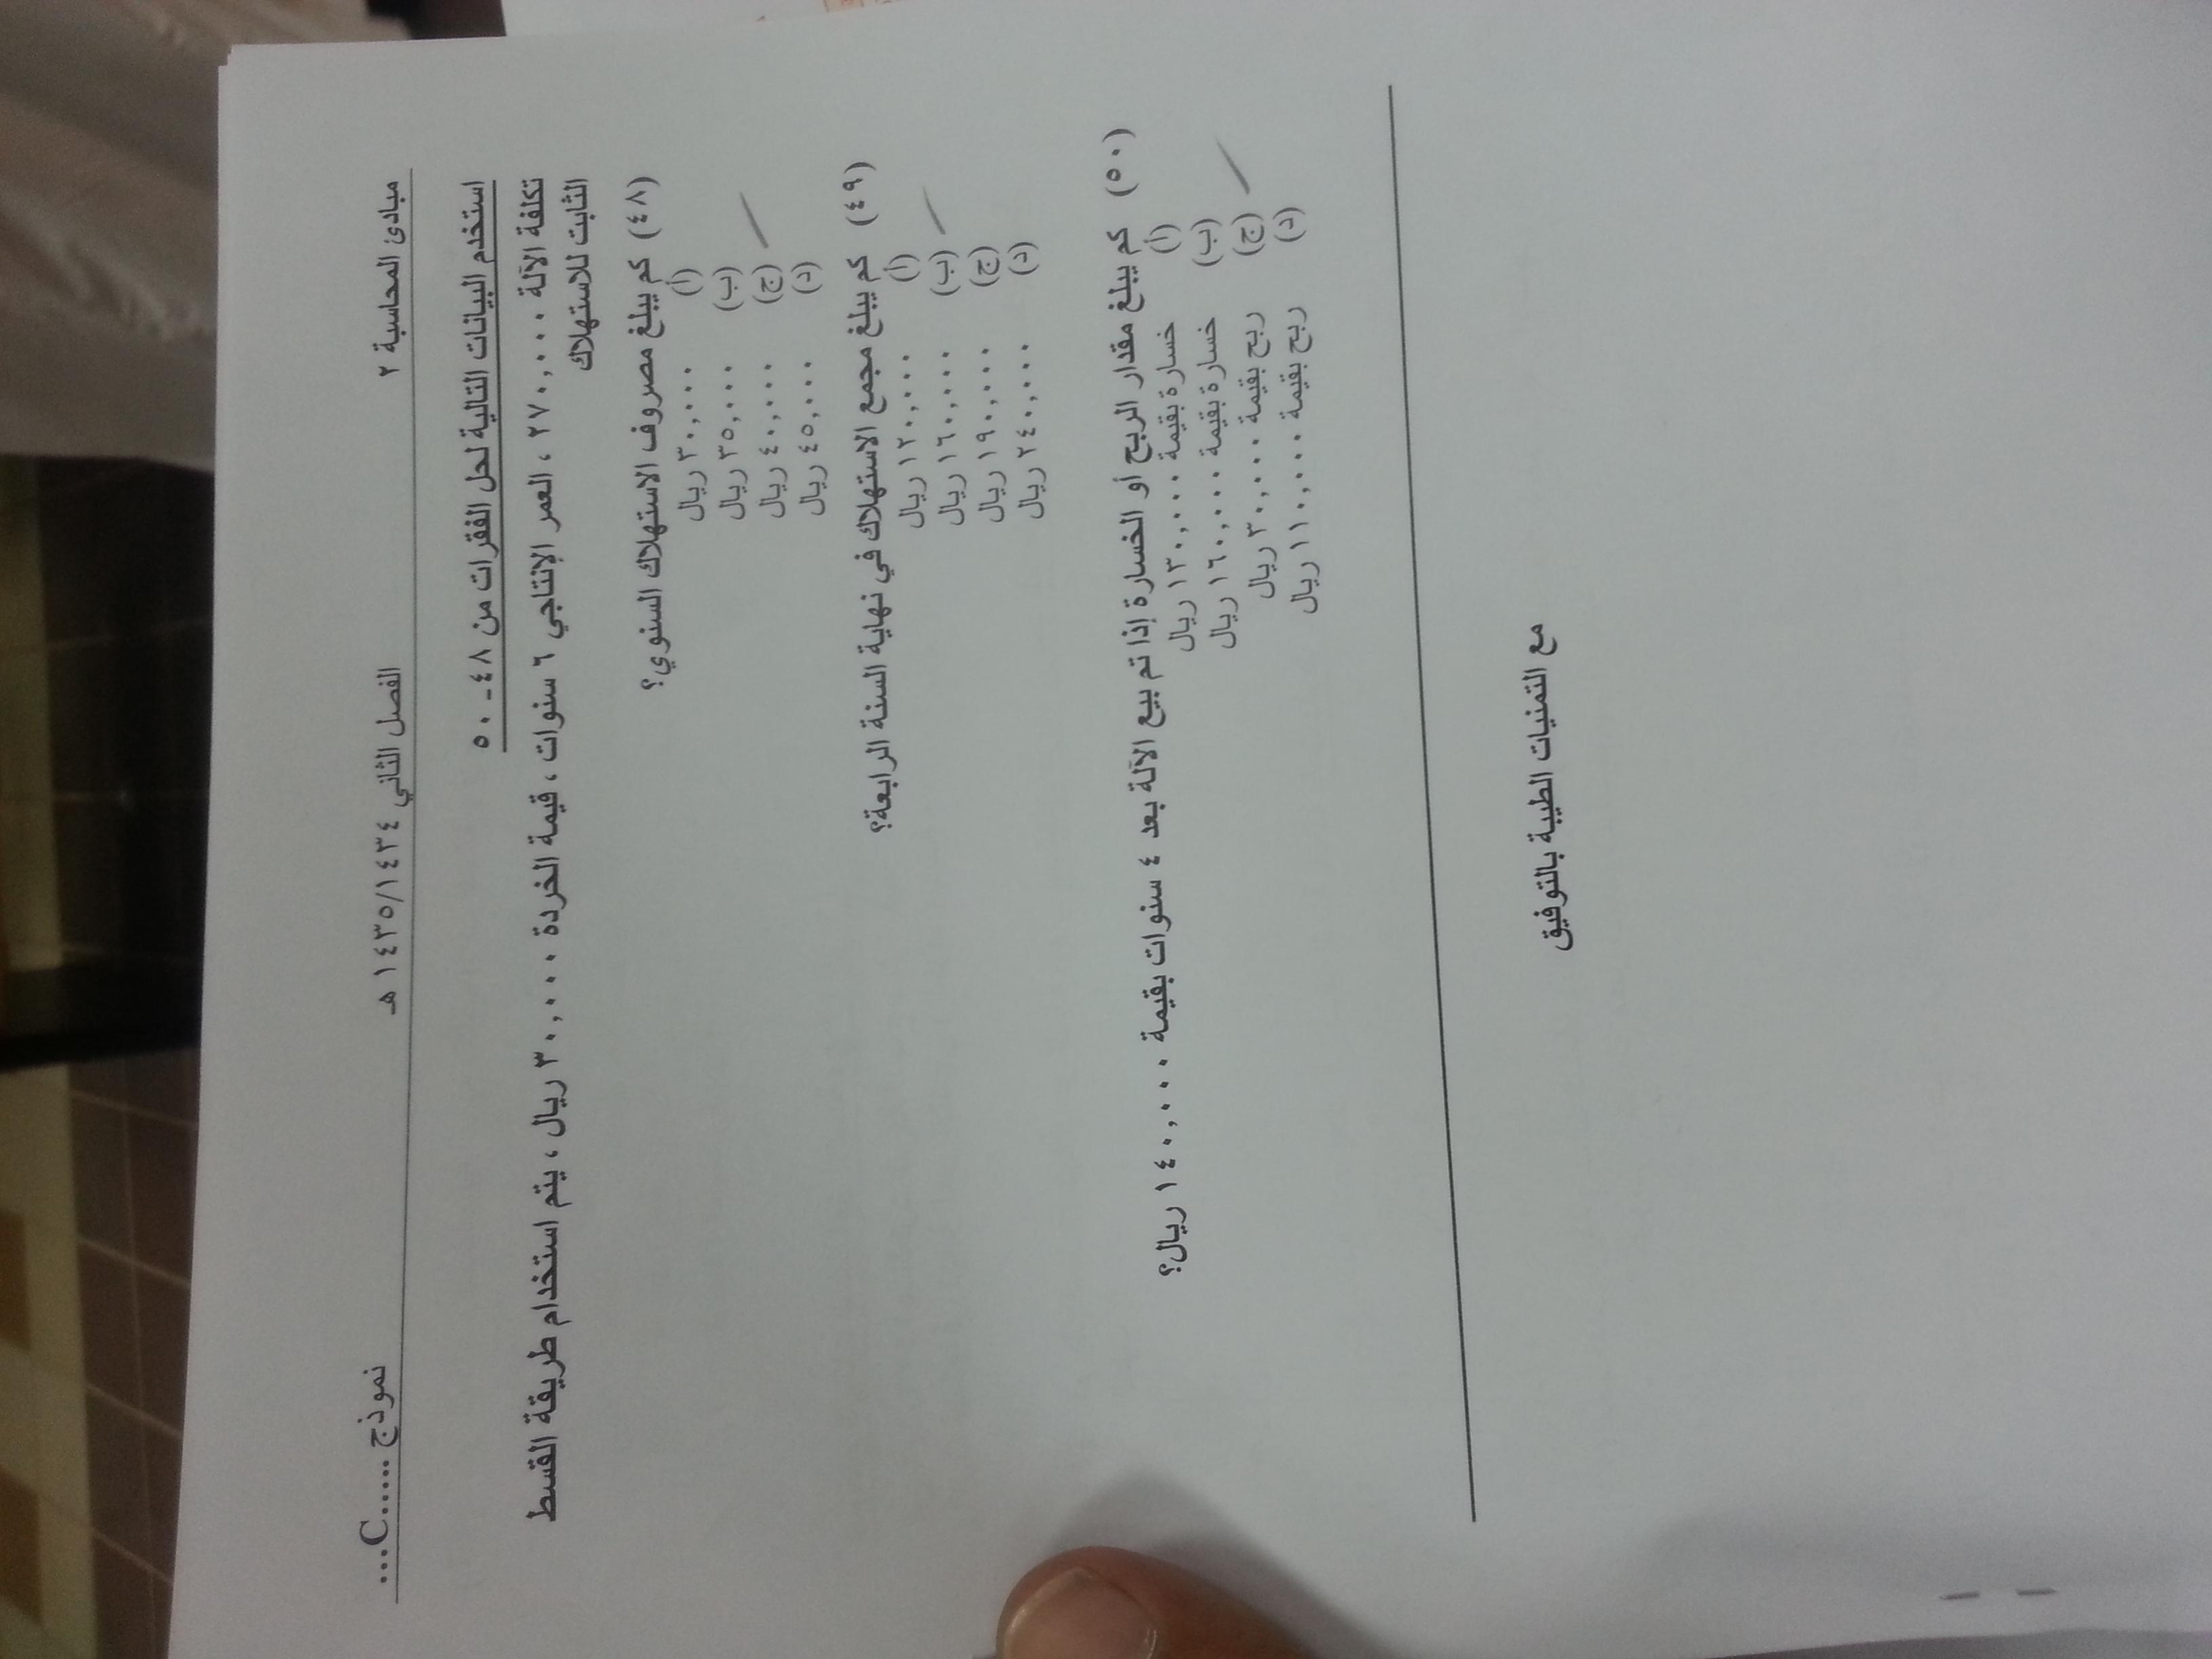 مبادئ المحاسبة ٢ الفصل الثاني ١٤٣٥/١٤٣٤ هـ نموذج ......C...
استخدم البيانات التالية لحل الفقرات من ٤٨ - ٥٠
تكلفة الآلة ٢٧٠,٠٠٠ ، العمر الإنتاجي ٦ سنوات ، قيمة الخردة ٣٠,٠٠٠ ريال ، يتم استخدام طريقة القسط
الثابت للاستهلاك
(٤٨) كم يبلغ مصروف الاستهلاك السنوي؟
(أ) ٣٠,٠٠٠ ريال
(ب) ٣٥,٠٠٠ ريال
(ج) ٤٠,٠٠٠ ريال
(د) ٤٥,٠٠٠ ريال
(٤٩) كم يبلغ مجمع الاستهلاك في نهاية السنة الرابعة؟
(أ) ١٢٠,٠٠٠ ريال
(ب) ١٦٠,٠٠٠ ريال
(ج) ١٩٠,٠٠٠ ريال
(د) ٢٤٠,٠٠٠ ريال
(٥٠) كم يبلغ مقدار الربح أو الخسارة إذا تم بيع الآلة بعد ٤ سنوات بقيمة ١٤٠,٠٠٠ ريال؟
(أ) خسارة بقيمة ١٣٠,٠٠٠ ريال
(ب) خسارة بقيمة ١٦٠,٠٠٠ ريال
(ج) ربح بقيمة ٣٠,٠٠٠ ريال
(د) ربح بقيمة ١١٠,٠٠٠ ريال
مع التمنيات الطيبة بالتوفيق